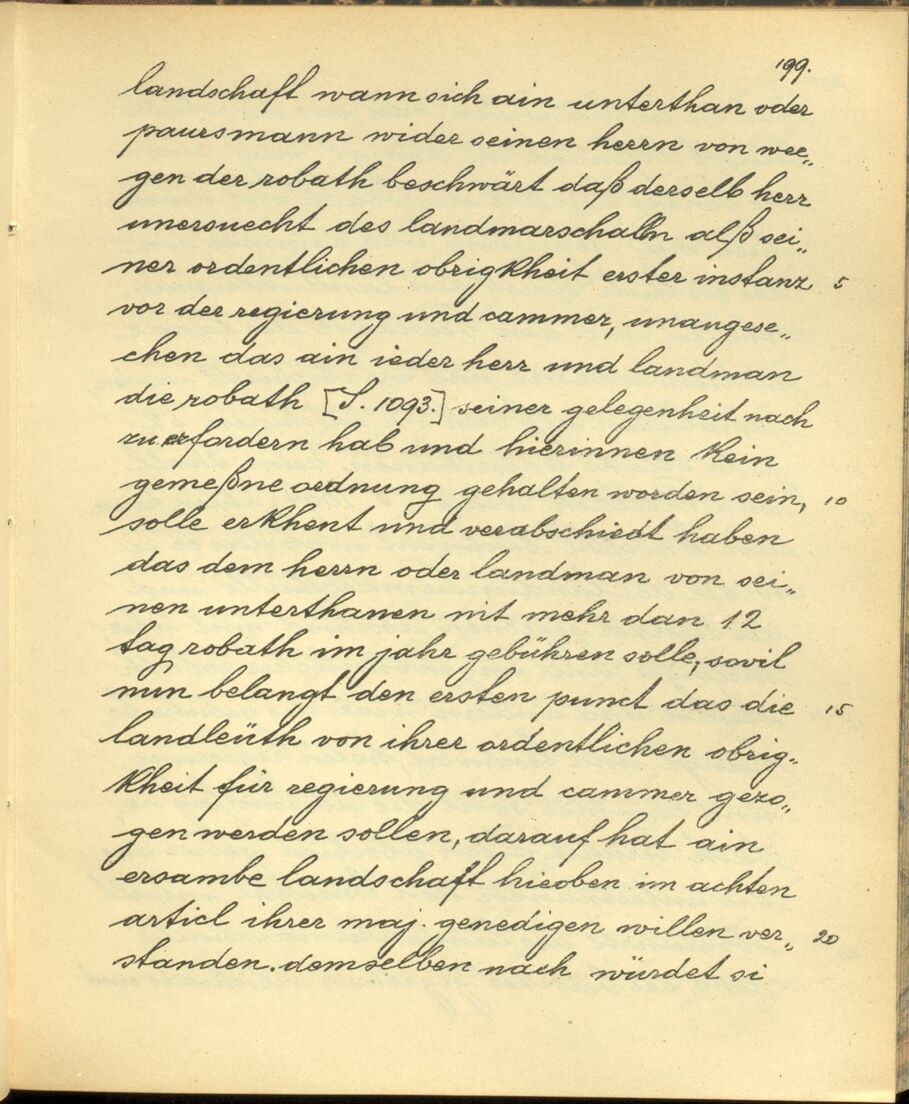 199.
landschaft wann sich ain unterthan oder
paursmann wider seinen herrn von wee„
gen der robath beschwärt daß derselb herr
unersuecht des landmarschaln alß sei„
ner ordentlichen obrigkheit erster instanz 5
vor der regierung und cammer, unangese„
chen das ain ieder herr und landman
die robath [S. 1093.] seiner gelegenheit nach
zu erfordern hab und hierinnen kein
gemeßne ordnung gehalten worden sein, 10
solle erkhent und verabschiedt haben
das dem herrn oder landman von sei„
nen unterthanen nit mehr dan 12
tag robath im jahr gebühren solle, sovil
nun belangt den ersten punct das die 15
landleüth von ihrer ordentlichen obrig„
kheit für regierung und cammer gezo„
gen werden sollen, darauf hat ain
ersambe landschaft hieoben im achten
articl ihrer maj. genedigen willen ver„ 20
standen. demselben nach würdet si